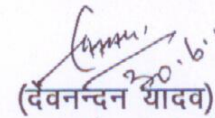 30.6.
(देवनन्दन यादव)